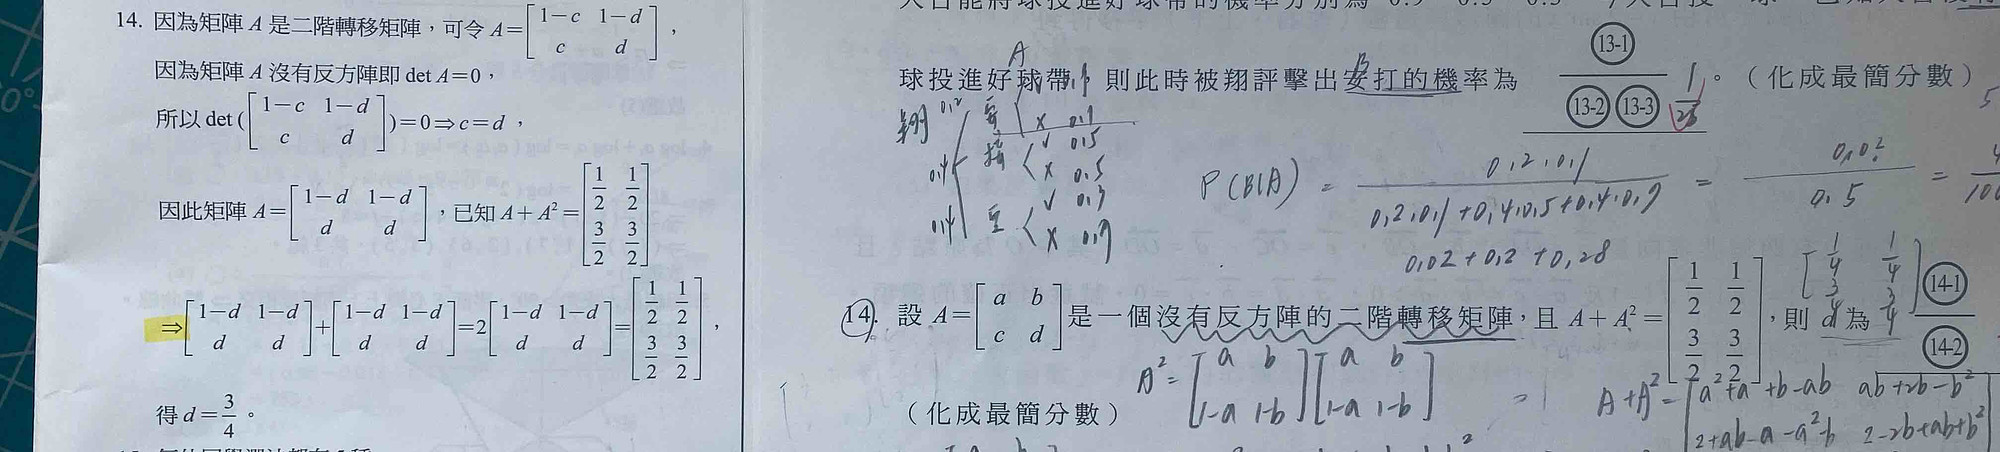 14. 因為矩陣 A 是二階轉移矩陣，可令 A=[1-c 1-d; c d]，
因為矩陣 A 沒有反方陣即 det A=0，
所以 det([1-c 1-d; c d])=0⇒c=d，
因此矩陣 A=[1-d 1-d; d d]，已知 A+A²=[1/2 1/2; 3/2 3/2]
⇒[1-d 1-d; d d]+[1-d 1-d; d d]=2[1-d 1-d; d d]=[1/2 1/2; 3/2 3/2]，
得 d=3/4。
球投進好球帶，則此時被翔評擊出安打的機率為 (13-1)/(13-2)(13-3)。（化成最簡分數）
A
B
1/25
翔
0.2
0.4
0.4
× 0.9
✓ 0.5
× 0.5
✓ 0.3
× 0.7
P(B|A) = 0.2·0.1 / 0.2·0.1+0.4·0.5+0.4·0.7 = 0.02 / 0.5 =
0.02+0.2+0.28
14. 設 A=[a b; c d] 是一個沒有反方陣的二階轉移矩陣，且 A+A²=[1/2 1/2; 3/2 3/2]，則 d 為 (14-1)/(14-2)
[1/4 1/4; 3/4 3/4]
（化成最簡分數）
A²=[a b; 1-a 1-b][a b; 1-a 1-b]
A+A²=[a²+a+b-ab ab+2b-b²; 2+ab-a-a²-b 2-2b+ab+b²]